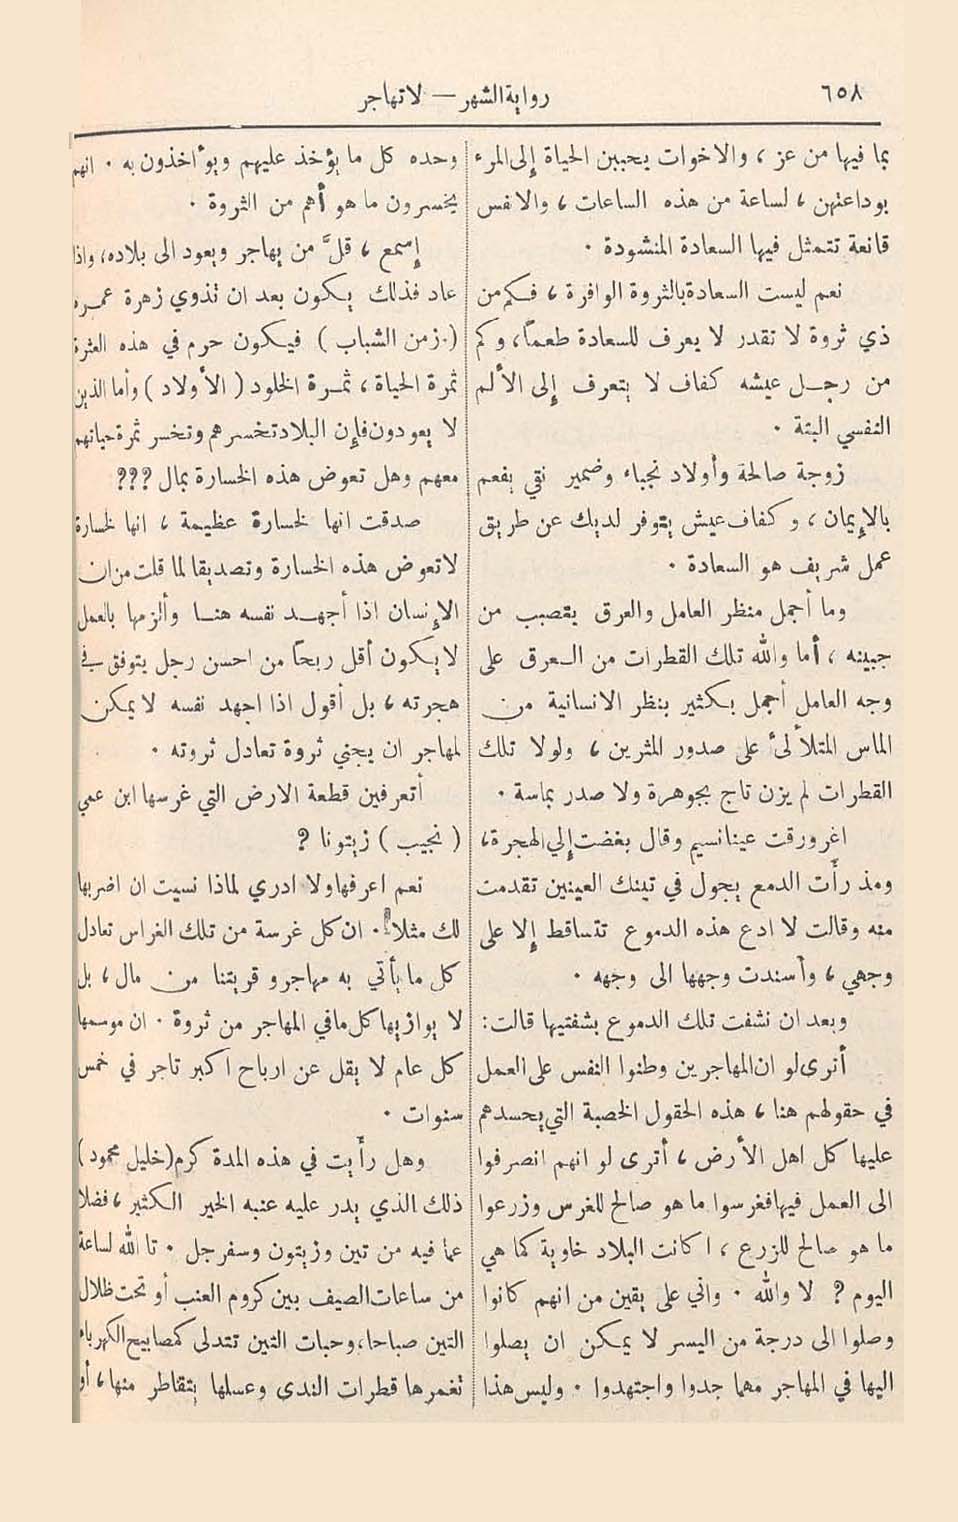 ٦٥٨
رواية الشهر — لا تهاجر
بما فيها من عز ، والاخوات يحببن الحياة إلى المرء
بوداعتهن ، لساعة من هذه الساعات ، والانفس
قانعة تتمثل فيها السعادة المنشودة .
نعم ليست السعادة بالثروة الوافرة ، فكم من
ذي ثروة لا تقدر لا يعرف للسعادة طعماً، وكم
من رجل عيشه كفاف لا يتعرف إلى الألم
النفسي البتة .
زوجة صالحة وأولاد نجباء وضمير نقي يفعم
بالإيمان ، وكفاف عيش يتوفر لديك عن طريق
عمل شريف هو السعادة .
وما أجمل منظر العامل والعرق يتصبب من
جبينه ، أما والله تلك القطرات من العرق على
وجه العامل أجمل بكثير بنظر الانسانية من
الماس المتلألئ على صدور المثرين ، ولولا تلك
القطرات لم يزن تاج بجوهرة ولا صدر بماسة .
اغرورقت عينا نسيم وقال بغضت إلي الهجرة،
ومذ رأت الدمع يجول في تينك العينين تقدمت
منه وقالت لا ادع هذه الدموع تتساقط إلا على
وجهي ، وأسندت وجهها الى وجهه .
وبعد ان نشفت تلك الدموع بشفتيها قالت:
أترى لو ان المهاجرين وطنوا النفس على العمل
في حقولهم هنا ، هذه الحقول الخصبة التي يحسدهم
عليها كل اهل الأرض ، أترى لو انهم انصرفوا
الى العمل فيها فغرسوا ما هو صالح للغرس وزرعوا
ما هو صالح للزرع ، اكانت البلاد خاوية كما هي
اليوم ? لا والله . واني على يقين من انهم كانوا
وصلوا الى درجة من اليسر لا يمكن ان يصلوا
اليها في المهاجر مهما جدوا واجتهدوا . وليس هذا
وحده كل ما يؤخذ عليهم ويؤاخذون به . انهم
يخسرون ما هو أهم من الثروة .
إسمع ، قلَّ من يهاجر ويعود الى بلاده، واذا
عاد فذلك يكون بعد ان تذوي زهرة عمره
(زمن الشباب) فيكون حرم في هذه العثرة
ثمرة الحياة ، ثمرة الخلود (الأولاد) وأما الذين
لا يعودون فإن البلاد تخسرهم وتخسر ثمرة حياتهم
معهم وهل تعوض هذه الخسارة بمال ???
صدقت انها لخسارة عظيمة ، انها لخسارة
لا تعوض هذه الخسارة وتصديقا لما قلت من ان
الإنسان اذا أجهد نفسه هنا وألزمها بالعمل
لا يكون أقل ربحاً من احسن رجل يتوفق في
هجرته ، بل أقول اذا اجهد نفسه لا يمكن
لمهاجر ان يجني ثروة تعادل ثروته .
أتعرفين قطعة الارض التي غرسها ابن عمي
(نجيب) زيتونا ?
نعم اعرفها ولا ادري لماذا نسيت ان اضربها
لك مثلا . ان كل غرسة من تلك الغراس تعادل
كل ما يأتي به مهاجرو قريتنا من مال ، بل
لا يوازيها كل ما في المهاجر من ثروة . ان موسمها
كل عام لا يقل عن ارباح اكبر تاجر في خمس
سنوات .
وهل رأيت في هذه المدة كرم (خليل محمود)
ذلك الذي يدر عليه عنبه الخير الكثير ، فضلا
عما فيه من تين وزيتون وسفرجل . تا الله لساعة
من ساعات الصيف بين كروم العنب أو تحت ظلال
التين صباحا، وحبات التين تتدلى كمصابيح الكهرباء
تغمرها قطرات الندى وعسلها يتقاطر منها ، أو